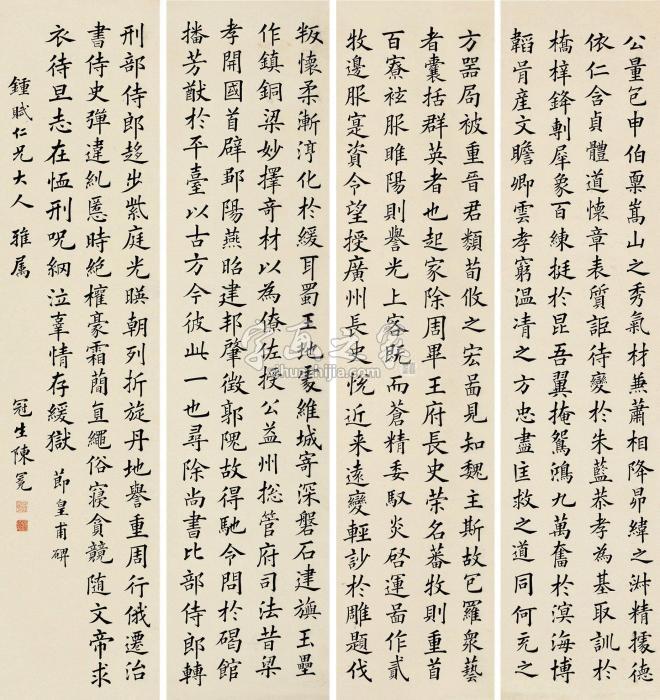 公量包申伯稟嵩山之秀氣材兼蕭相降昴緯之淋精據德
依仁含貞體道懷章表質詎待變於朱藍恭孝為基取訓於
橋梓鋒剸犀象百練挺於昆吾翼掩鴛鴻九萬奮於溟海博
韜骨産文瞻卿雲孝窮温凊之方忠盡匡救之道同何充之
方器局被重晋君類荀攸之宏啚見知魏主斯故包羅衆藝
者囊括群英者也起家除周畢王府長史荣名蕃牧則重首
百寮袨服睢陽則譽光上客既而蒼精委馭炎啓運啚作貳
牧邊服寔資令望授廣州長史悅近来遠變輕訬於雕題伐
叛懷柔漸淳化於緩耳蜀王地處維城寄深磐石建旟玉壘
作鎮銅梁妙擇奇材以為僚佐授公益州総管府司法昔梁
孝開國首辟鄒陽燕昭建邦肇徴郭隗故得馳令問於碣館
播芳猷於平臺以古方今彼此一也尋除尚書比部侍郎轉
刑部侍郎趍步紫庭光暎朝列折旋丹地譽重周行俄遷治
書侍史彈違糺慝時絶權豪霜簡直繩俗寝貪競随文帝求
衣待旦志在恤刑呪網泣辜情存緩獄 節皇甫碑
鍾賦仁兄大人 雅属
冠生陳冕
字画之家
zihuazhijia.com